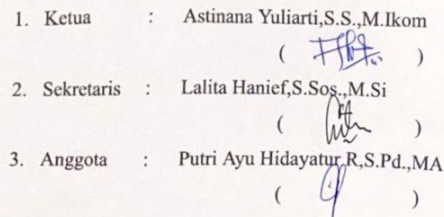 1. Ketua : Astinana Yuliarti,S.S.,M.Ikom
( )
2. Sekretaris : Lalita Hanief,S.Sos.,M.Si
( )
3. Anggota : Putri Ayu Hidayatur.R,S.Pd.,MA
( )